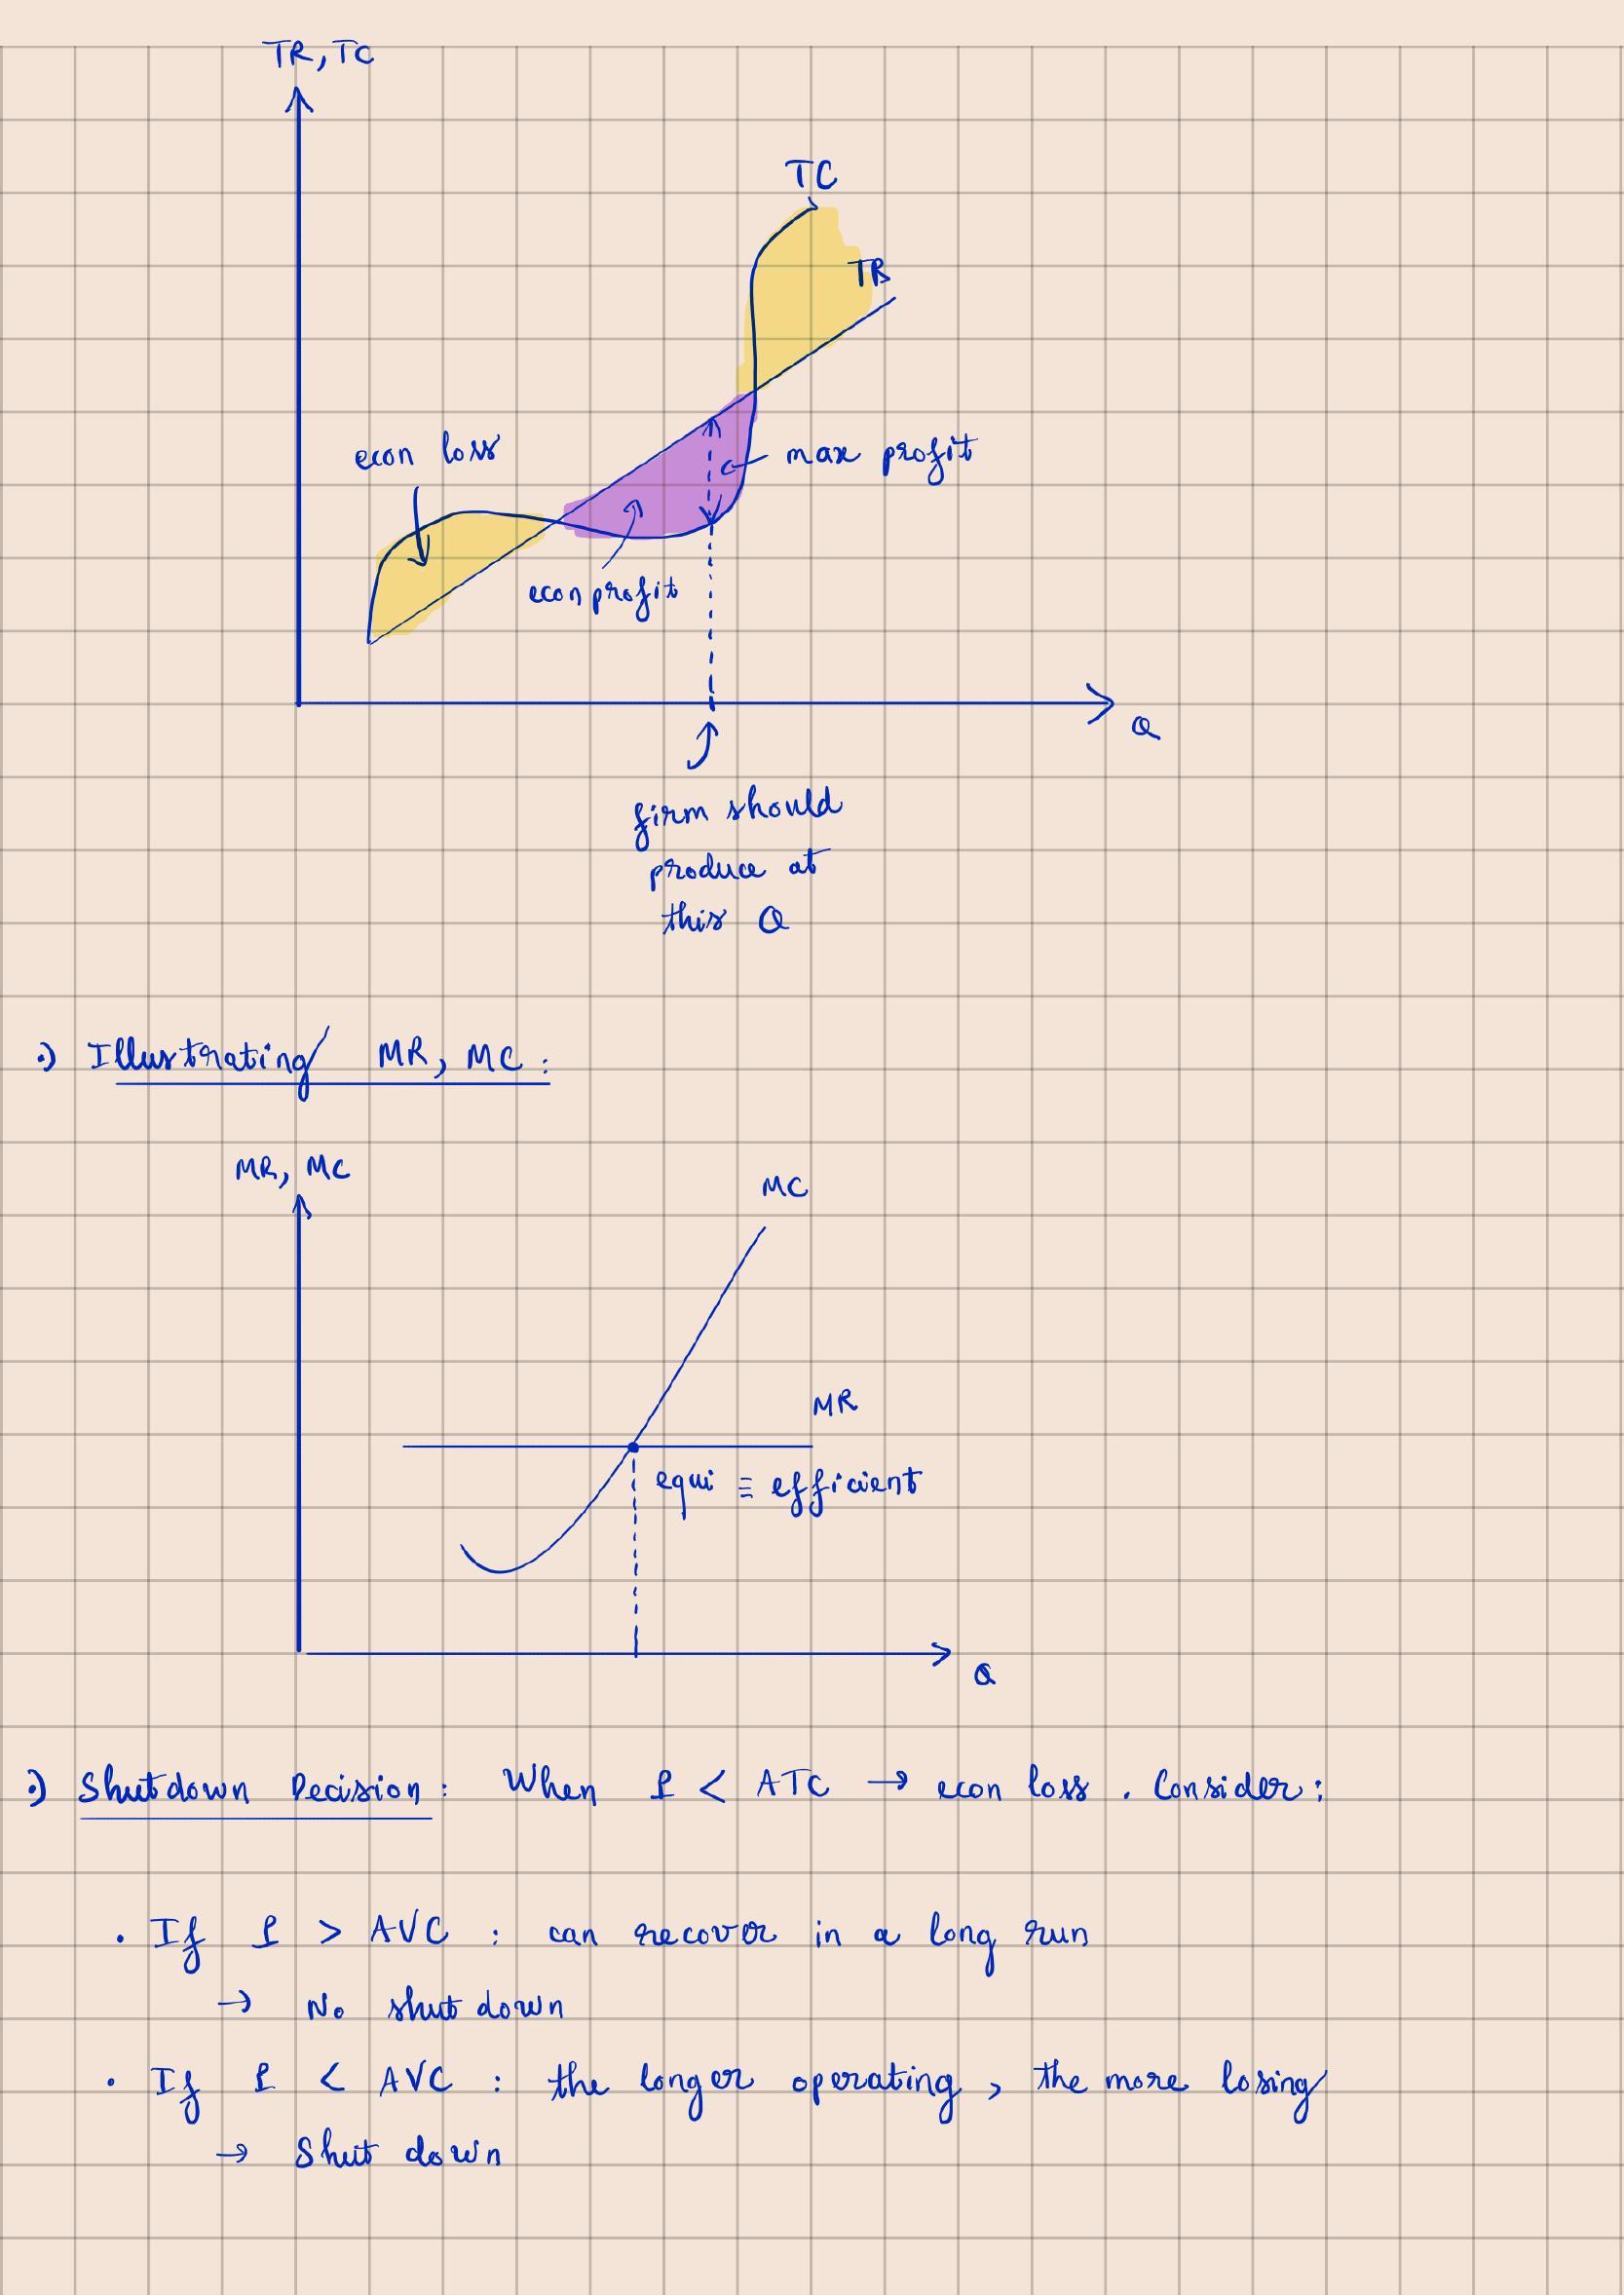 TR, TC
TC
TR
econ loss
max profit
econ profit
Q
firm should
produce at
this Q
•) Illustrating MR, MC :
MR, MC
MC
MR
equi ≡ efficient
Q
•) Shutdown Decision : When P < ATC → econ loss . Consider :
• If P > AVC : can recover in a long run
→ No shut down
• If P < AVC : the longer operating , the more losing
→ Shut down